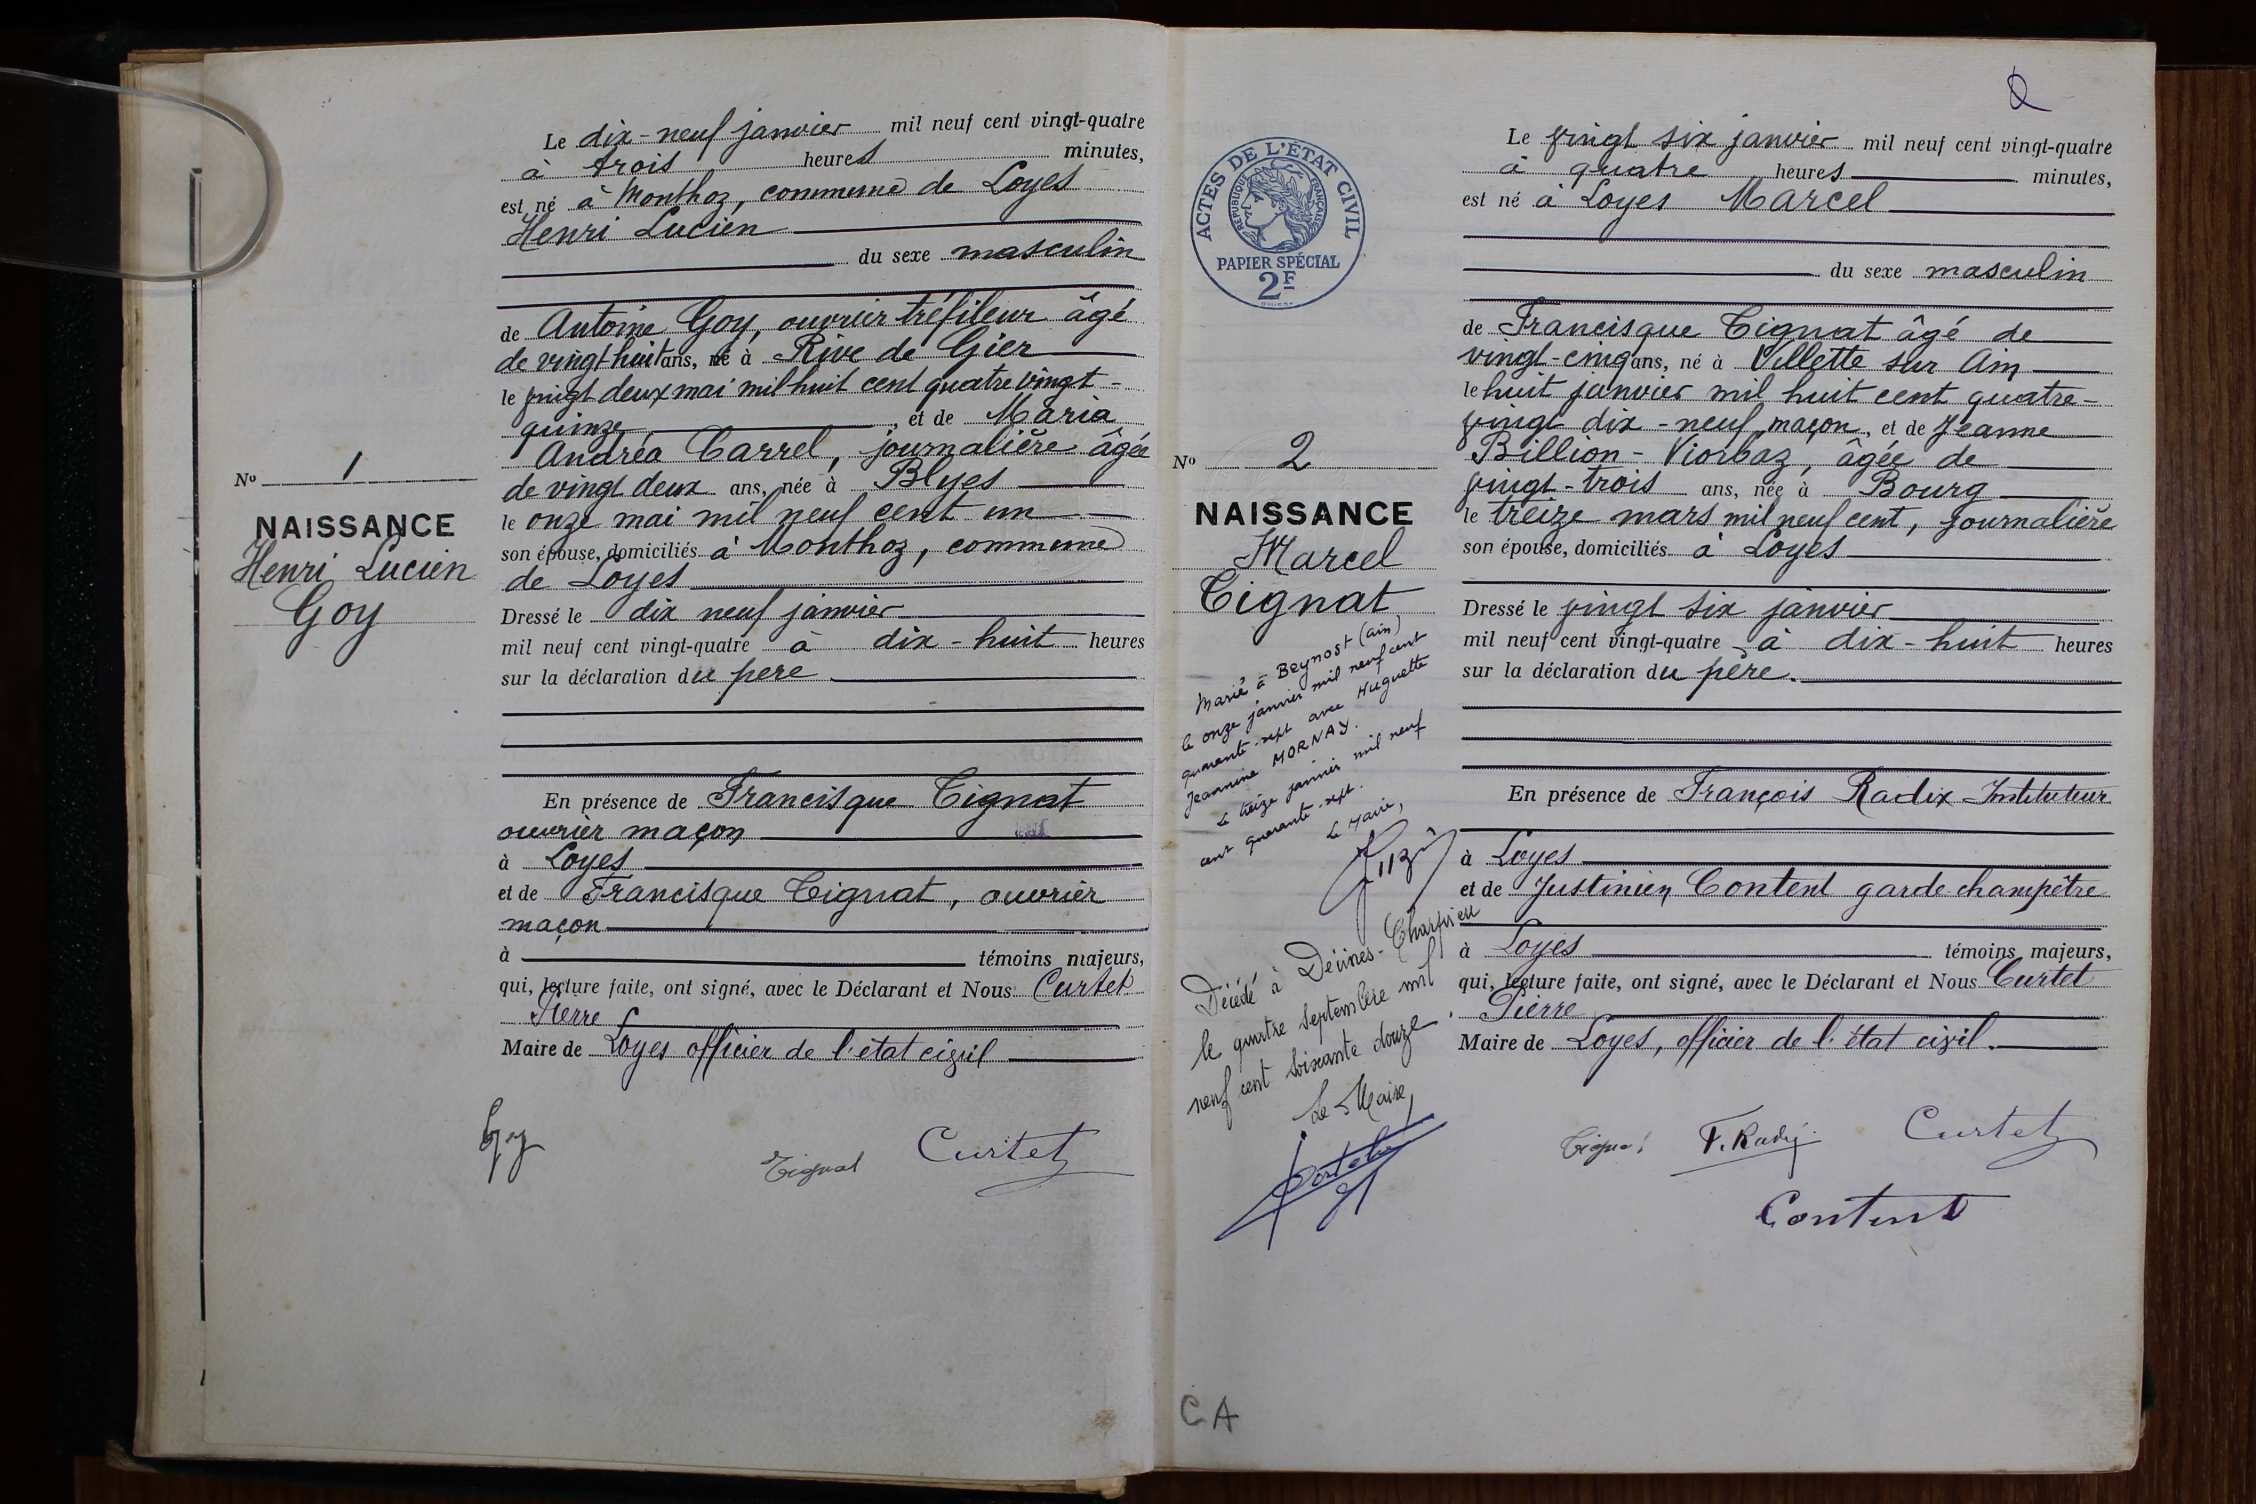 Le dix-neuf janvier mil neuf cent vingt-quatre
à trois heures minutes,
est né à Monthoz, commune de Loyes
Henri Lucien
du sexe masculin
de Antoine Goy, ouvrier tréfileur âgé
de vingt huit ans, né à Rive de Gier
le vingt deux mai mil huit cent quatre vingt-
quinze, et de Maria
Andréa Carrel, journalière âgée
de vingt deux ans, née à Blyes
le onze mai mil neuf cent un
son épouse, domiciliés à Monthoz, commune
de Loyes
Dressé le dix neuf janvier
mil neuf cent vingt-quatre à dix-huit heures
sur la déclaration du père
En présence de Francisque Tignat
ouvrier maçon
à Loyes
et de Francisque Tignat, ouvrier
maçon
à témoins majeurs,
qui, lecture faite, ont signé, avec le Déclarant et Nous Curtet
Pierre
Maire de Loyes officier de l'état civil
Goy
Tignat
Curtet
No 1
NAISSANCE
Henri Lucien
Goy
2
ACTES DE L'ÉTAT CIVIL
RÉPUBLIQUE FRANÇAISE
PAPIER SPÉCIAL
2F
No 2
NAISSANCE
Marcel
Tignat
Marié à Beynost (Ain)
le onze janvier mil neuf cent
quarante-sept avec Huguette
Jeannine MORNAY.
Le treize janvier mil neuf
cent quarante-sept.
Le Maire,
Décédé à Décines-Charpieu
le quatre septembre mil
neuf cent soixante douze.
Le Maire,
Le vingt six janvier mil neuf cent vingt-quatre
à quatre heures minutes,
est né à Loyes Marcel
du sexe masculin
de Francisque Tignat âgé de
vingt-cinq ans, né à Villette sur Ain
le huit janvier mil huit cent quatre-
vingt dix-neuf, maçon, et de Jeanne
Billion-Viorbaz, âgée de
vingt-trois ans, née à Bourg
le treize mars mil neuf cent, journalière
son épouse, domiciliés à Loyes
Dressé le vingt six janvier
mil neuf cent vingt-quatre à dix-huit heures
sur la déclaration du père.
En présence de François Radix Instituteur
à Loyes
et de Justinien Content garde-champêtre
à Loyes témoins majeurs,
qui, lecture faite, ont signé, avec le Déclarant et Nous Curtet
Pierre
Maire de Loyes, officier de l'état civil.
Tignat
F. Radix
Curtet
Content
CA